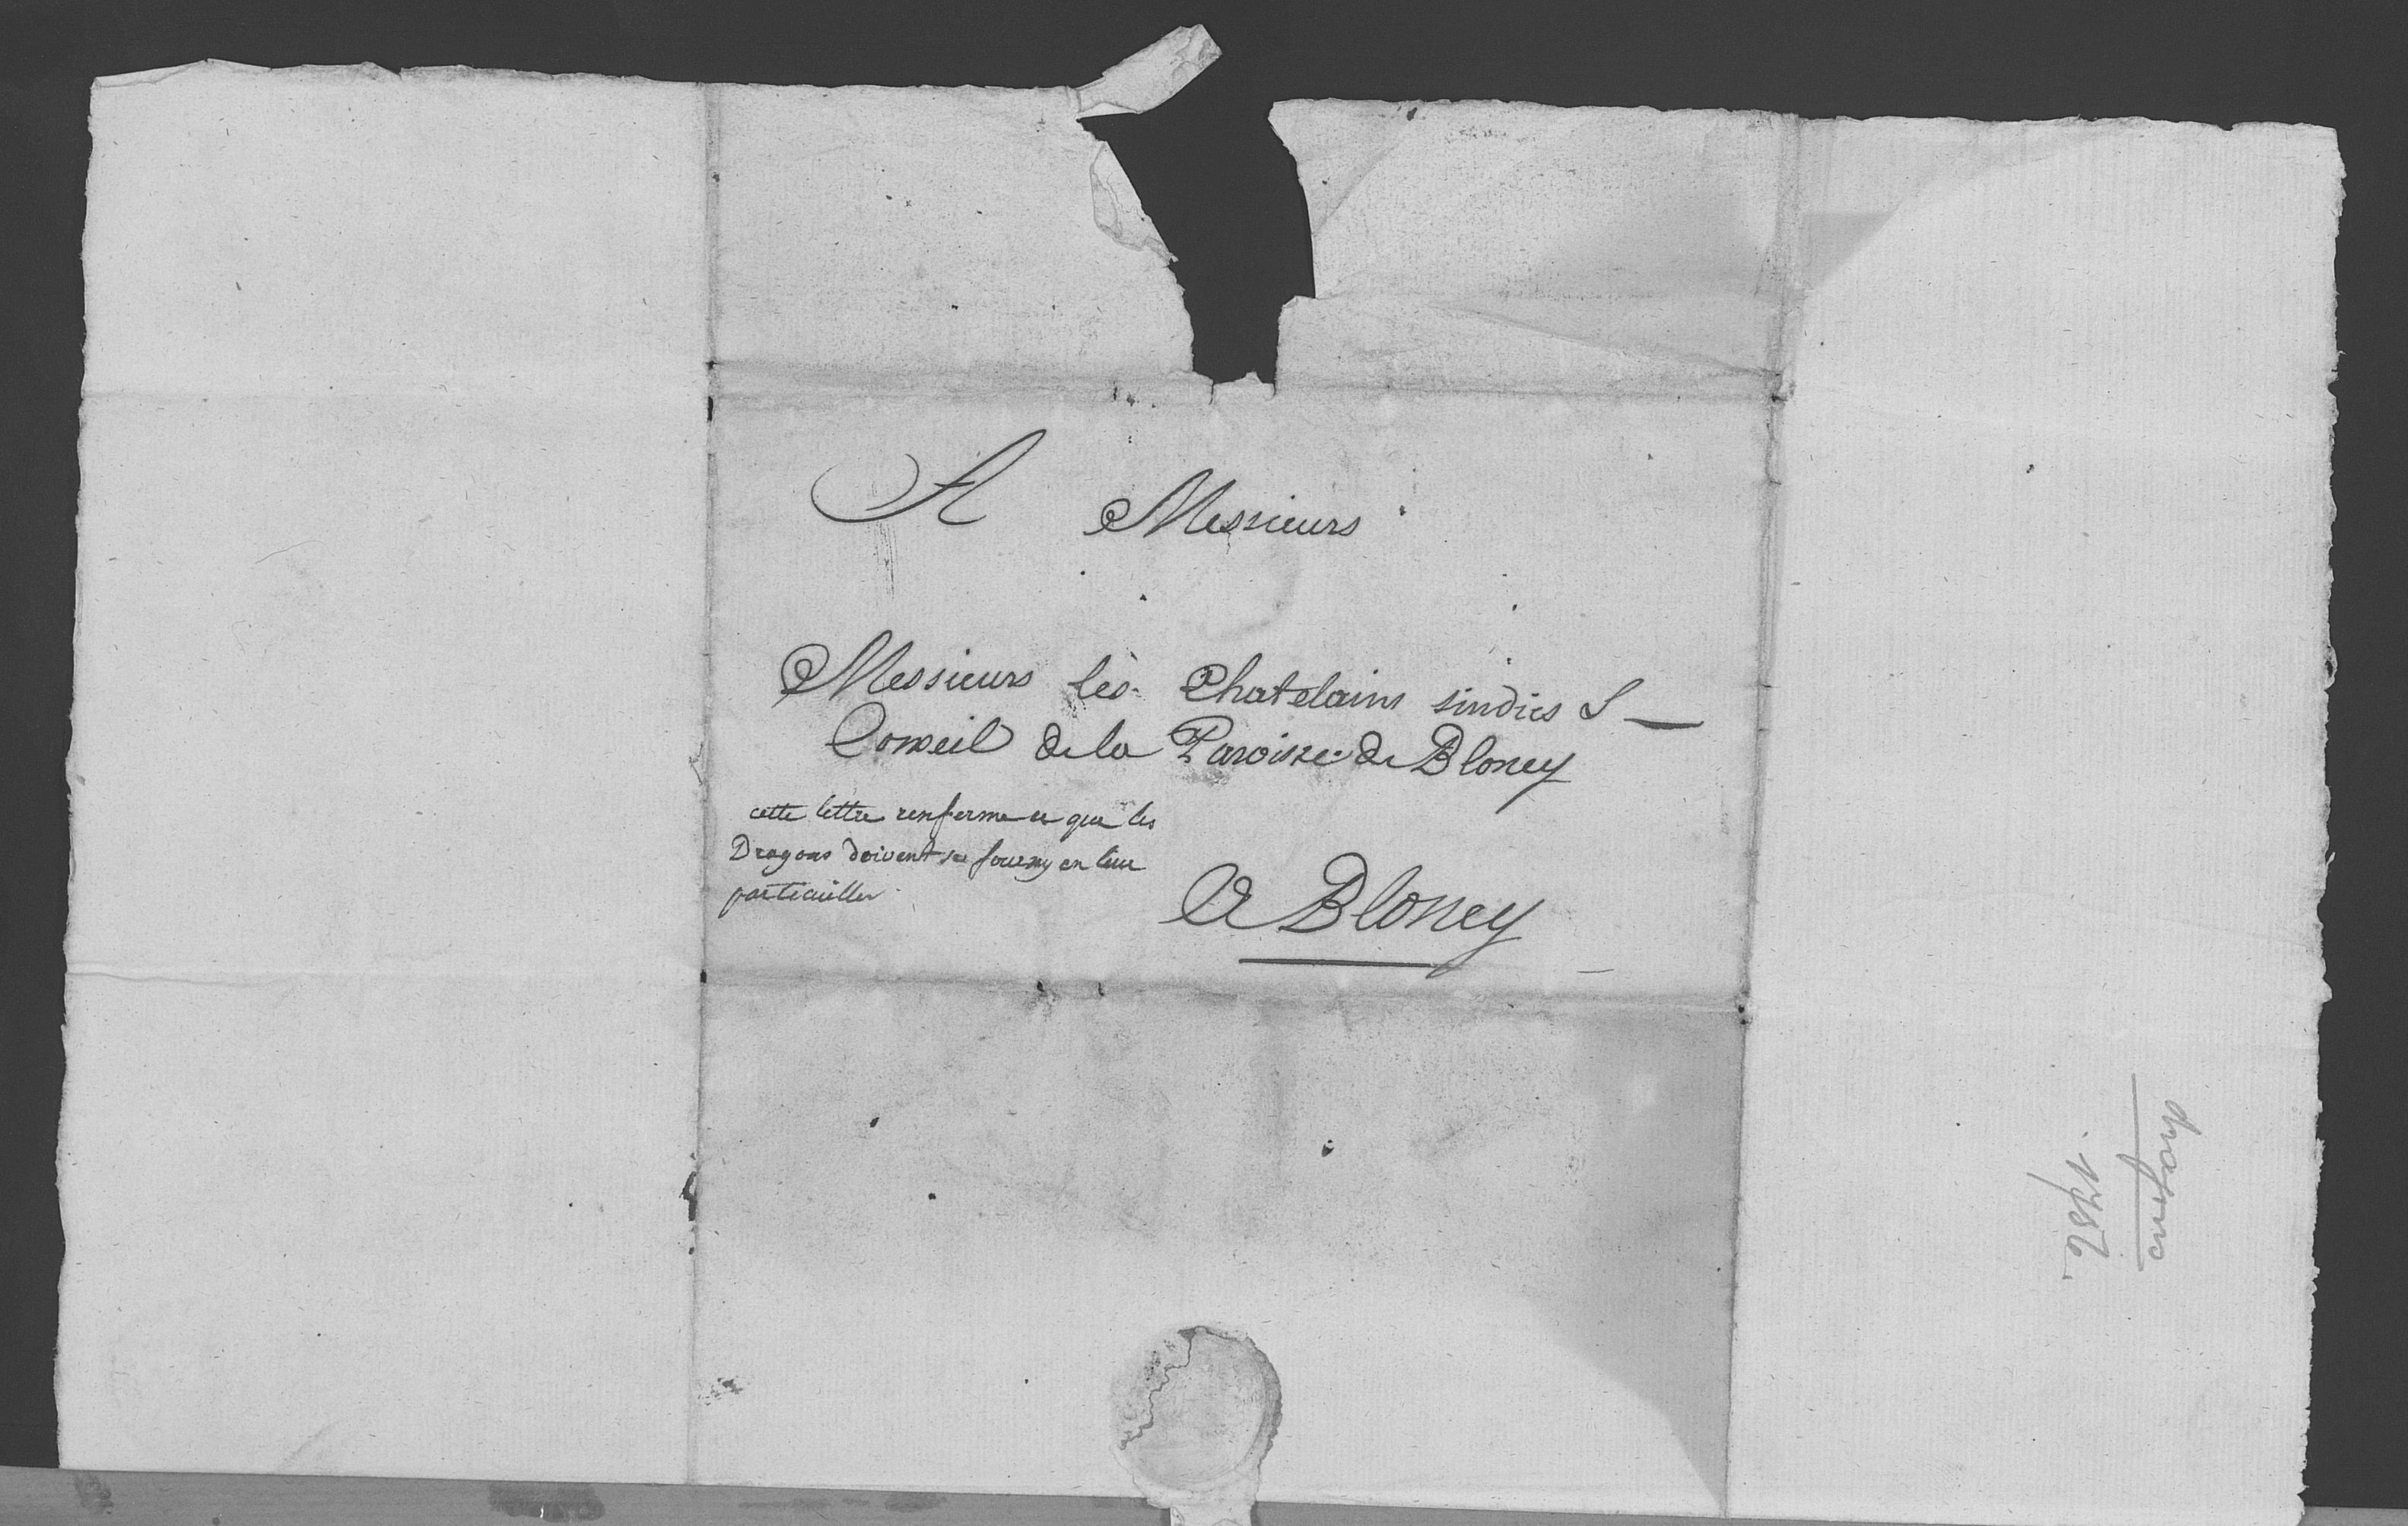 A Messieurs
Messieurs les Chatelains sindics &
Conseil de la Paroisse de Bloney
cette lettre renferme ce que les
Dragons doivent se fourny en leur
particuiller
A Bloney
dragons
1786.